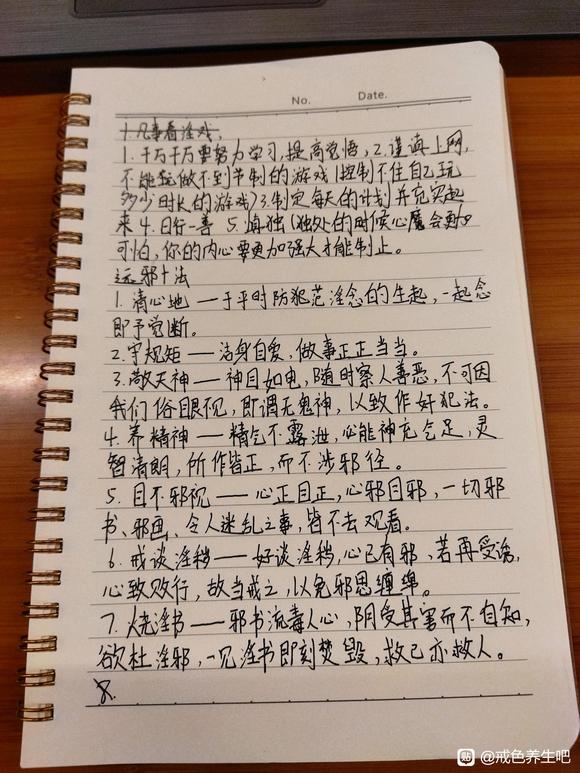 No.
Date.
1. 千万千万要努力学习,提高觉悟,2.谨慎上网,
不能玩做不到节制的游戏(控制不住自己玩
多少时长的游戏)3.制定每天的计划并充实起
来 4.日行一善 5.慎独(独处的时候心魔会更加
可怕,你的内心要更加强大才能制止。
远邪十法
1.清心地——于平时防犯范淫念的生起,一起念
即予觉断。
2.守规矩——洁身自爱,做事正正当当。
3.敬天神——神目如电,随时察人善恶,不可因
我们俗眼不见,即谓无鬼神,以致作奸犯法。
4.养精神——精气不露泄,必能神充气足,灵
智清朗,所作皆正,而不涉邪径。
5.目不邪视——心正目正,心邪目邪,一切邪
书、邪画、令人迷乱之事,皆不去观看。
6.戒谈淫秽——好谈淫秽,心已有邪、若再受诱,
心致败行,故当戒之,以免邪思缠绵。
7.烧淫书——邪书流毒人心,阴受其害而不自知,
欲杜淫邪,一见淫书即刻焚毁,救己亦救人。
贴 @戒色养生吧